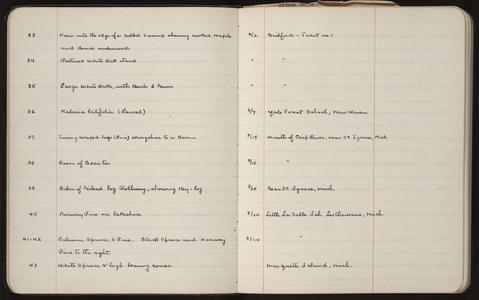 33 View into the edge of a rather swamp showing rooted maple 6/2 Guilford - Tract no. 1
and dense underwood
34 Pastured White Oak stand " "
35 Large White Oaks, with Beech & Gum " "
36 Kalmia latifolia (Laurel) 6/7 Yale Forest School, New Haven
37 logs (Pine) alongshore to a Boom 8/15 mouth of Carp River, near St. Ignace, Mich.
38 Boom of Cedar ties 8/15 "
39 Log Rollway, showing Key-log Near St. Ignace, Mich.
40 Norway Pine on lakeshore 8/20 Little La Salle Isl. Les Cheneaux, Mich.
41-42 Balsam, Spruce, & Pine. Black Spruce and Norway 8/20 "
Pine to the right.
43 White Spruce & high bearing cones. Marquette Island, Mich.